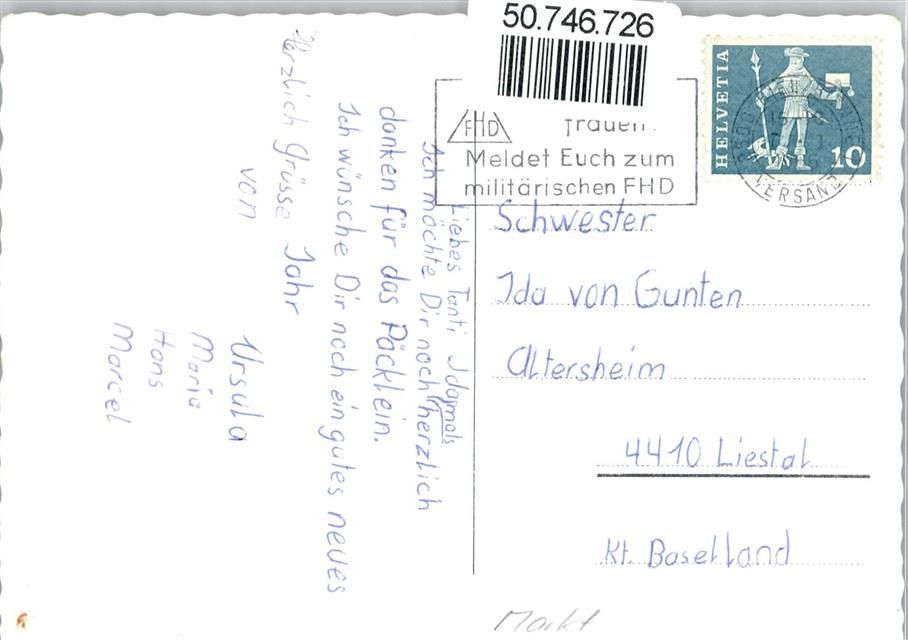 50.746.726
FHD
Frauen
Meldet Euch zum
militärischen FHD
HELVETIA
10
VERSAND
Liebes Tanti Ida
Ich möchte Dir nochmals herzlich
danken für das Päcklein.
Ich wünsche Dir noch ein gutes neues
Jahr
Herzlich Grüsse
von
Ursula
Maria
Hans
Marcel
Schwester
Ida von Gunten
Altersheim
4410 Liestal
Kt. Baselland
Markt